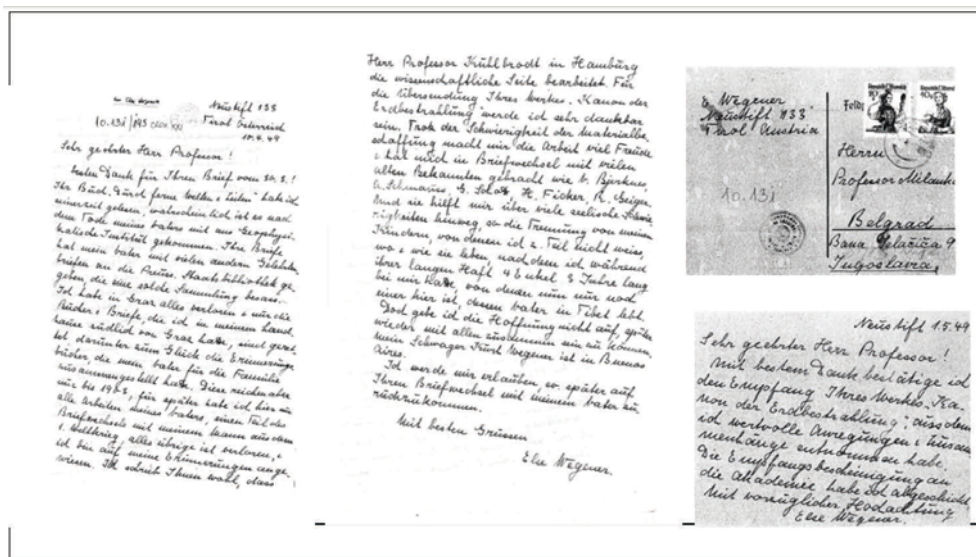 Neustift 133
Tirol Österreich
10.4.49
Sehr geehrter Herr Professor!
Besten Dank für Ihren Brief vom 30.3.!
Ihr Buch „Durch ferne Welten & Zeiten" habe ich
seinerzeit gelesen, wahrscheinlich ist es nach
dem Tode meines Vaters mit ans Geophysi-
kalische Institut gekommen. Ihre Briefe
hat mein Vater mit vielen andern Gelehrten-
briefen an die Preuss. Staatsbibliothek ge-
geben, die eine solche Sammlung besass.
Ich habe in Graz alles verloren & nur die
Bilder & Briefe, die ich in meinem Land-
haus südlich von Graz hatte, sind geret-
tet darunter zum Glück die Erinnerungs-
bücher, die mein Vater für die Familie
zusammengestellt hatte. Diese reichen aber
nur bis, für später habe ich hier nur
alle Arbeiten meines Vaters, einen Teil des
Briefwechsels mit meinem Mann aus dem
1. Weltkrieg, alles übrige ist verloren, &
ich bin auf meine Erinnerungen ange-
wiesen. Ich schrieb Ihnen wohl, dass
Herr Professor Kuhlbrodt in Hamburg
die wissenschaftliche Seite bearbeitet. Für
die Übersendung Ihres Werkes „Kanon der
Erdbestrahlung werde ich sehr dankbar
sein. Trotz der Schwierigkeit der Materialbe-
schaffung macht mir die Arbeit viel Freude
& hat mich in Briefwechsel mit vielen
alten Bekannten gebracht wie V. Bjerknes,
A. Schmauss, G. Schott, H. Ficker, R. Geiger.
Und sie hilft mir über viele seelische Schwie-
rigkeiten hinweg, so die Trennung von meinen
Kindern, von denen ich z. Teil nicht weiss,
wo & wie sie leben, nachdem ich während
ihrer langen Haft 4 Enkel 3 Jahre lang
bei mir hatte, von denen nun nur noch
einer hier ist, dessen Vater in Tibet lebt.
Doch gebe ich die Hoffnung nicht auf, später
wieder mit allen zusammen sein zu können.
Mein Schwager Kurt Wegener ist in Buenos
Aires.
Ich werde mir erlauben, später auf
Ihren Briefwechsel mit meinem Vater zu-
rückzukommen.
Mit besten Grüssen
Else Wegener.
E. Wegener
Neustift 133
Tirol Austria
10.13i
Herrn
Professor Milank
Belgrad
Bana Jelačića 9
Jugoslavia,
Neustift 1.5.49
Sehr geehrter Herr Professor!
Mit bestem Dank bestätige ich
den Empfang Ihres Werkes „Ka-
non der Erdbestrahlung", aus dem
ich wertvolle Anregungen & Zusam-
menhänge entnommen habe.
Die Empfangsbescheinigung an
die Akademie habe ich abgeschickt
Mit vorzüglicher Hochachtung
Else Wegener.